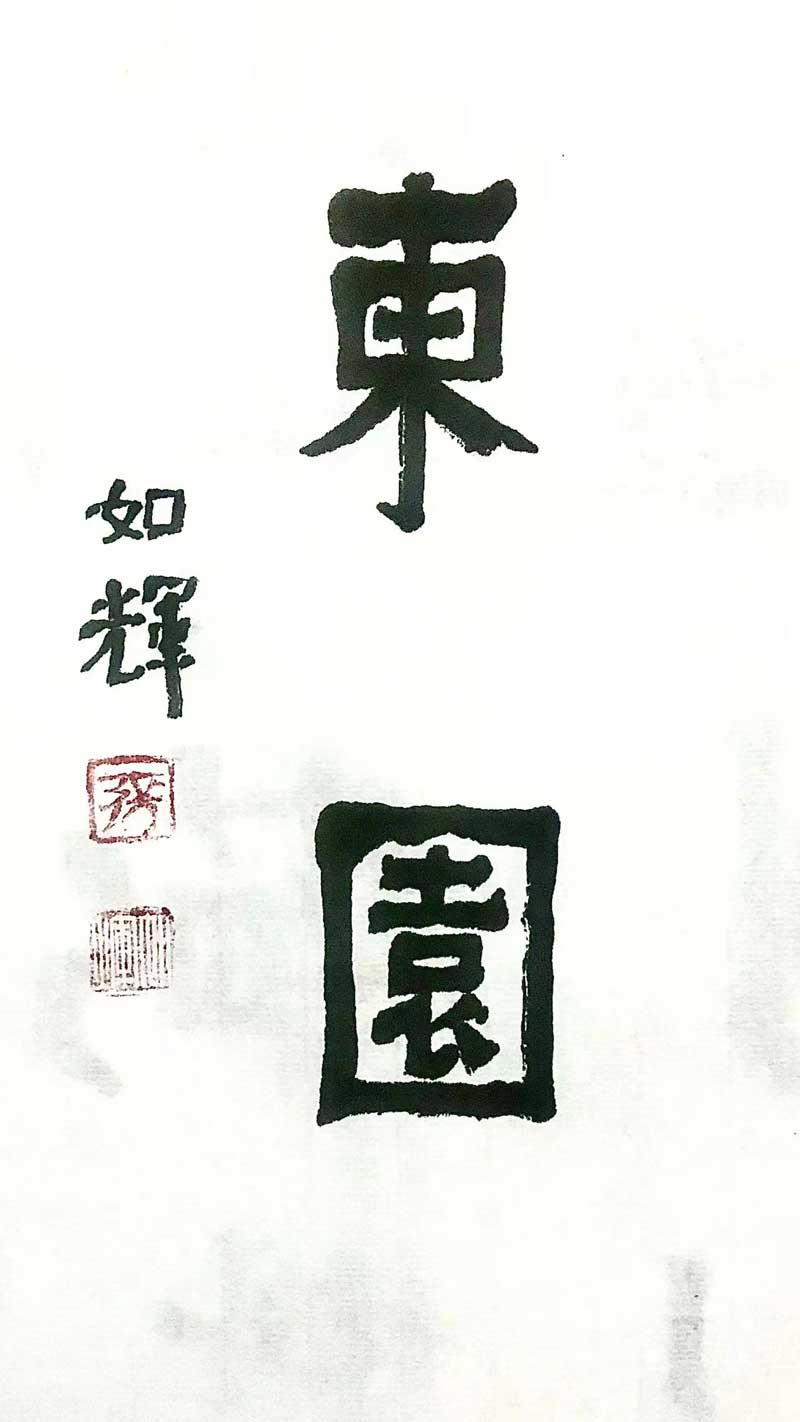 東園
如輝